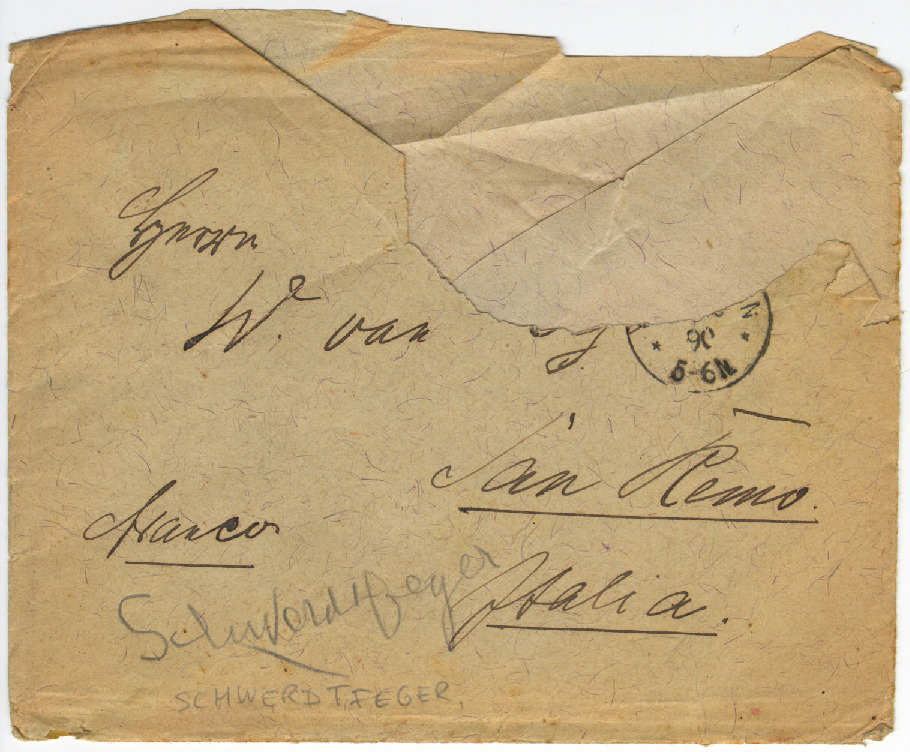 Herrn
W. van
N
* 90 *
5-6N
San Remo.
Franco
Italia.
Schwerdtfeger
SCHWERDTFEGER